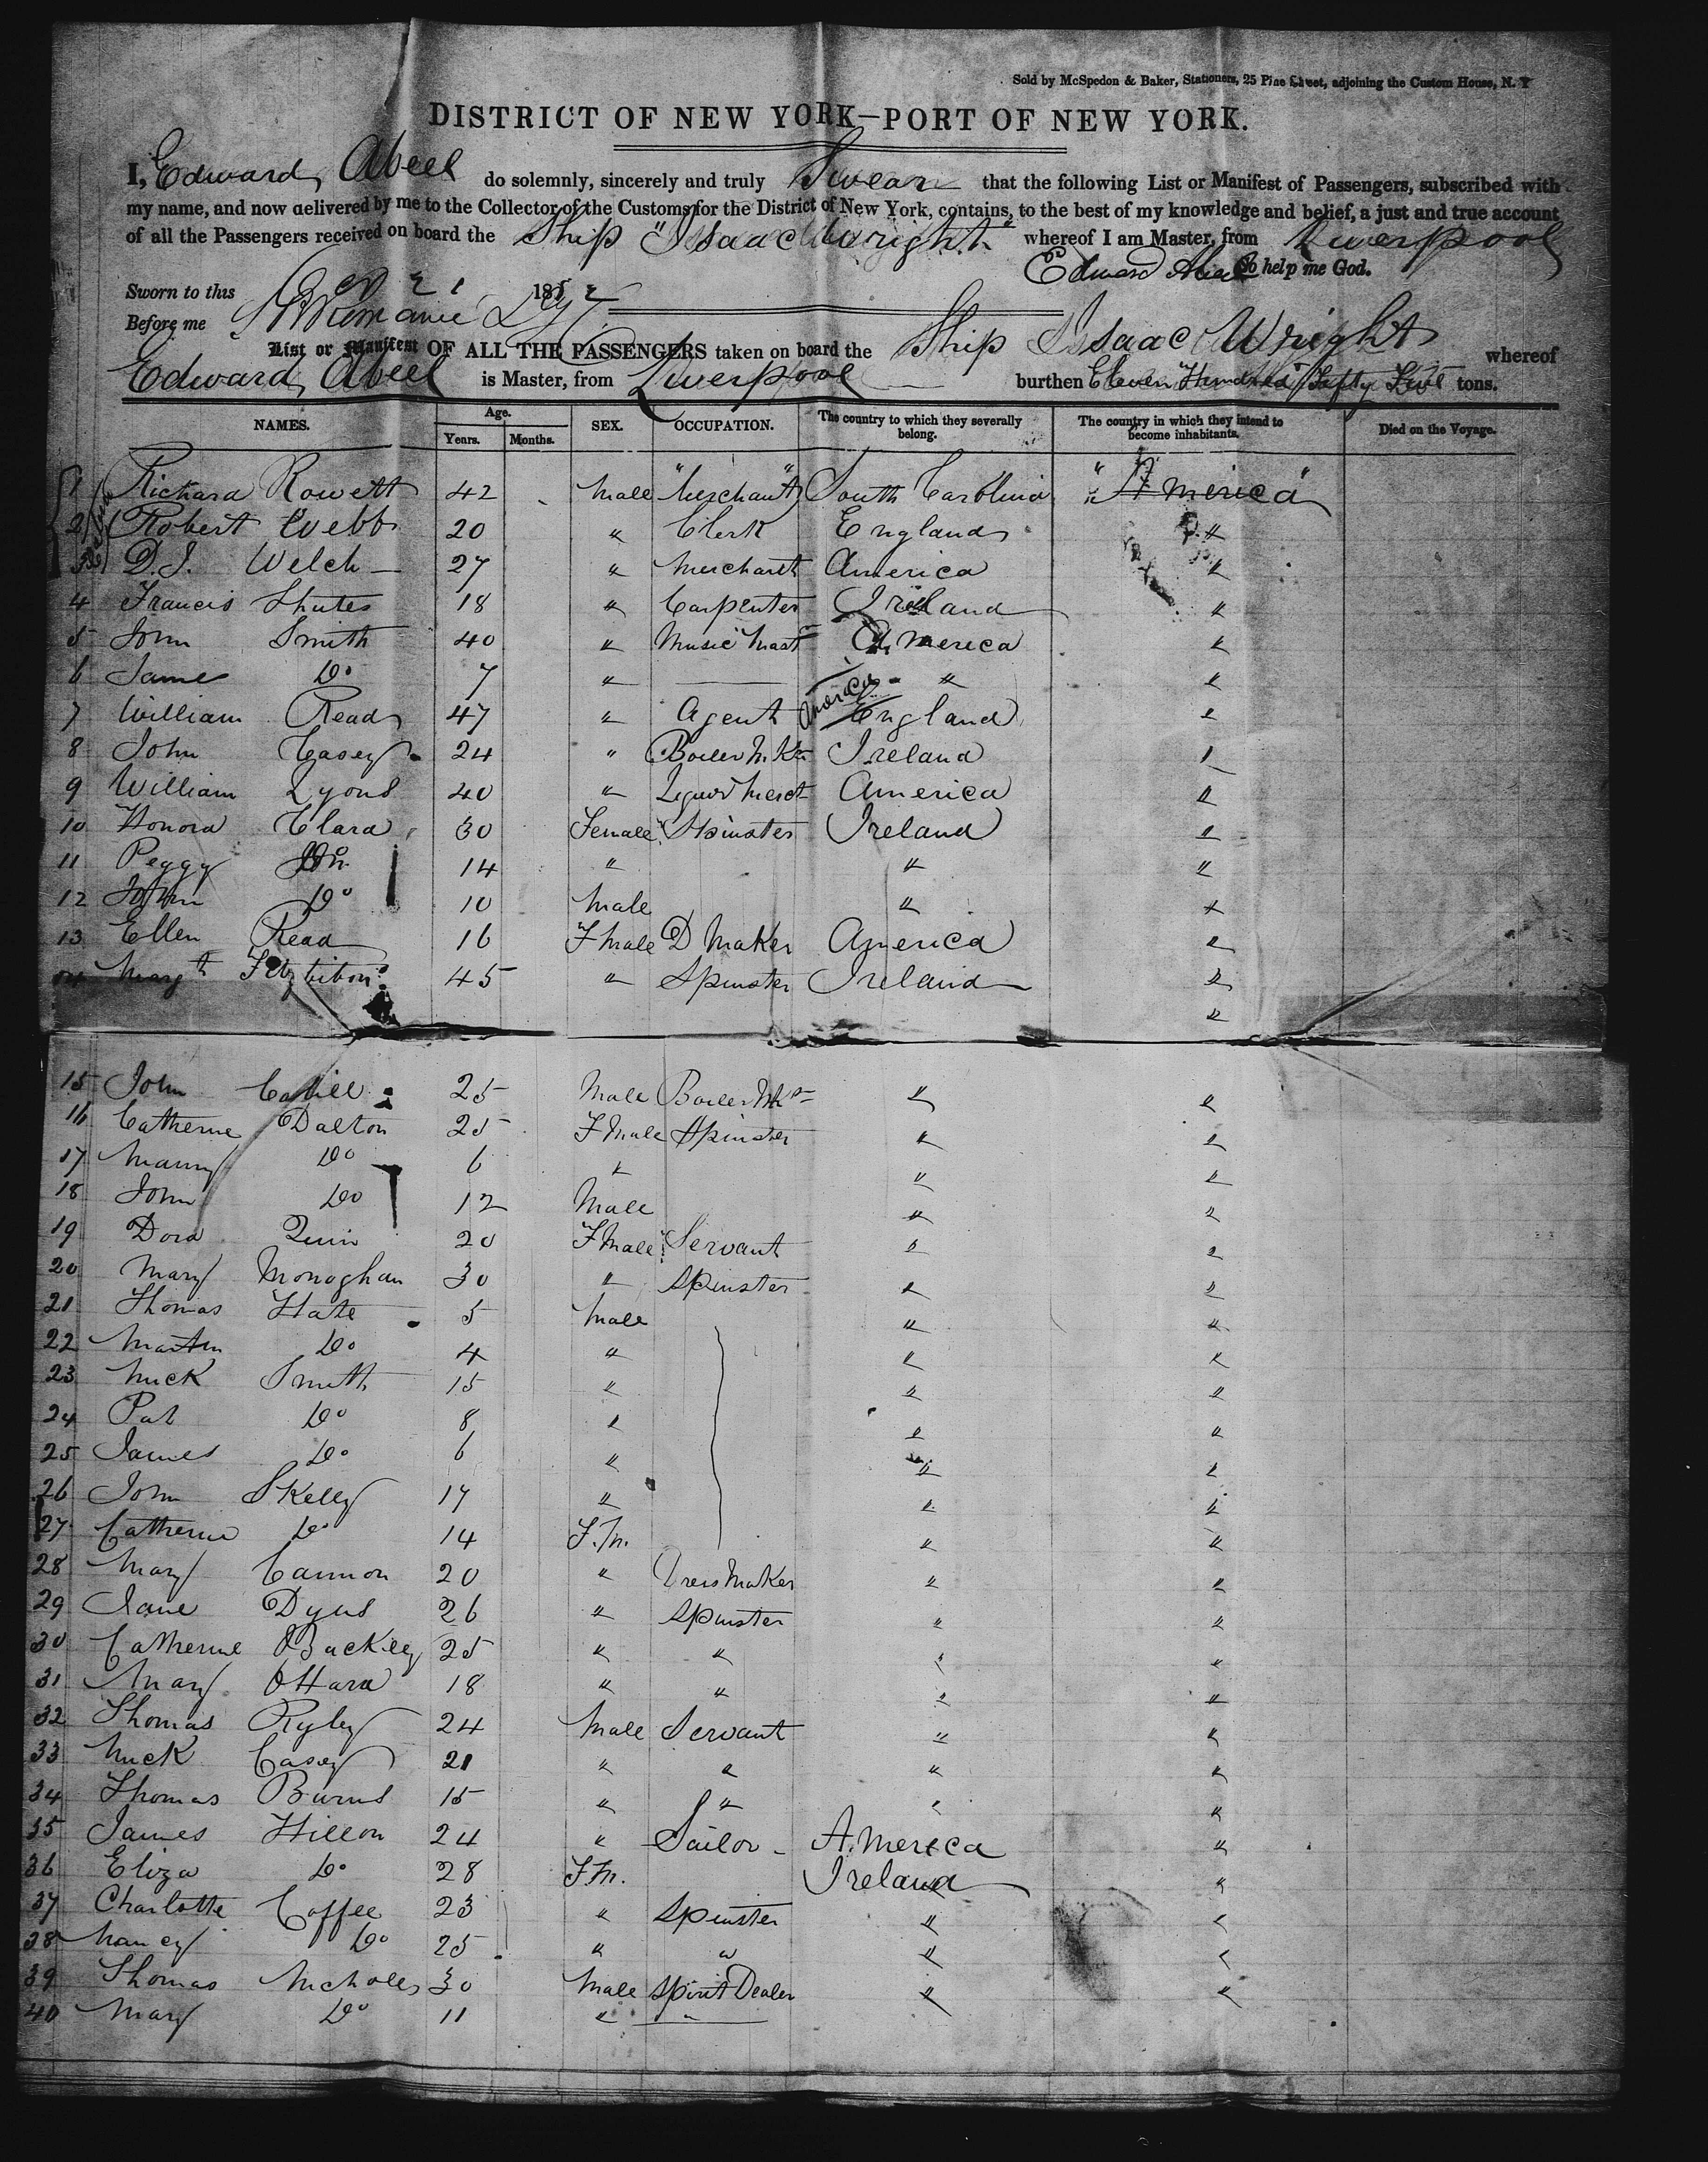 Sold by McSpedon & Baker, Stationers, 25 Pine Street, adjoining the Custom House, N. Y
DISTRICT OF NEW YORK—PORT OF NEW YORK.
I, Edward Abeel do solemnly, sincerely and truly Swear that the following List or Manifest of Passengers, subscribed with
my name, and now delivered by me to the Collector of the Customs for the District of New York, contains, to the best of my knowledge and belief, a just and true account
of all the Passengers received on board the Ship "Isaac Wright" whereof I am Master, from Liverpool
Edward Abeel So help me God.
Sworn to this 21 1852
Before me
List or Manifest OF ALL THE PASSENGERS taken on board the Ship Isaac Wright whereof
Edward Abeel is Master, from Liverpool burthen Eleven Hundred Fifty Five tons.
NAMES. Age. Years. Months. SEX. OCCUPATION. The country to which they severally belong. The country in which they intend to become inhabitants. Died on the Voyage.
1 Richard Rowett 42 Male "Merchant" South Carolina "America"
2 Robert Webb 20 " Clerk England "
3 D.J. Welch 27 " Merchant America "
4 Francis Shutes 18 " Carpenter Ireland "
5 John Smith 40 " Music Mast America "
6 James Do 7 " — " "
7 William Read 47 " Agent America England "
8 John Casey 24 " Boiler Mkr Ireland "
9 William Lyons 40 " Liquor Mercht America "
10 Honora Clara 30 Female Spinster Ireland "
11 Peggy Do 14 " " "
12 John Do 10 Male " "
13 Ellen Read 16 F Male D Maker America "
14 Margth Fitzbibon 45 " Spinster Ireland "
"
15 John Cahill 25 Male Boiler Mkr " "
16 Catherine Dalton 25 F Male Spinster " "
17 Manny Do 6 " " "
18 John Do 12 Male " "
19 Dora Quin 20 F Male Servant " "
20 Mary Monaghan 30 " Spinster " "
21 Thomas Hate 5 Male " "
22 Martin Do 4 " " "
23 Mick Smith 15 " " "
24 Pat Do 8 " " "
25 James Do 6 " " "
26 John Skelly 17 " " "
27 Catherine Do 14 F.M. " "
28 Mary Cannon 20 " Dress Maker " "
29 Jane Dyus 26 " Spinster " "
30 Catherine Buckley 25 " " " "
31 Mary OHara 18 " " " "
32 Thomas Ryley 24 Male Servant " "
33 Mick Casey 21 " " " "
34 Thomas Burns 15 " " " "
35 James Hillon 24 " Sailor - America "
36 Eliza Do 28 F.M. Ireland "
37 Charlotte Coffee 23 " Spinster " "
38 Nancy Do 25 " " " "
39 Thomas Nicholes 30 Male Spirit Dealer " "
40 Mary Do 11 " —